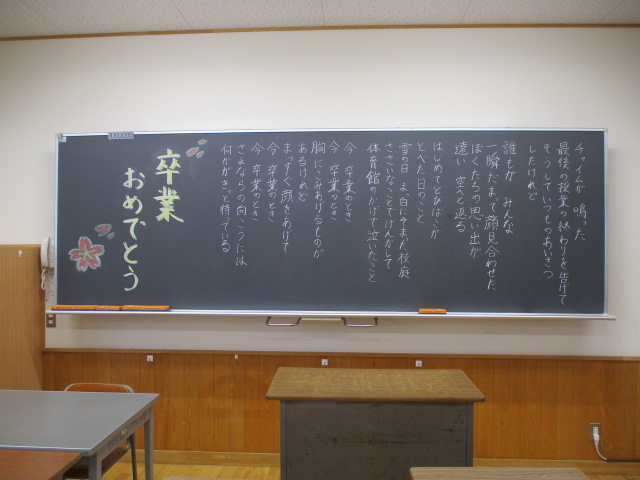 チャイムが 鳴った
最後の授業の終わりを告げて
そうしていつものあいさつ
したけれど
誰もが みんな
一瞬だまって顔見合わせた
ぼくたちの思い出が
遠い 空へと返る
はじめてとびばこが
とべた日のこと
雪の日 まっ白にそまった校庭
ささいなことでけんかして
体育館のかげで泣いたこと
今 卒業のとき
今 卒業のとき
胸にこみあげるものが
あるけれど
まっすぐ顔をあげて
今 卒業のとき
今 卒業のとき
さよならの向こうには
何かがきっと待っている
卒業
おめでとう